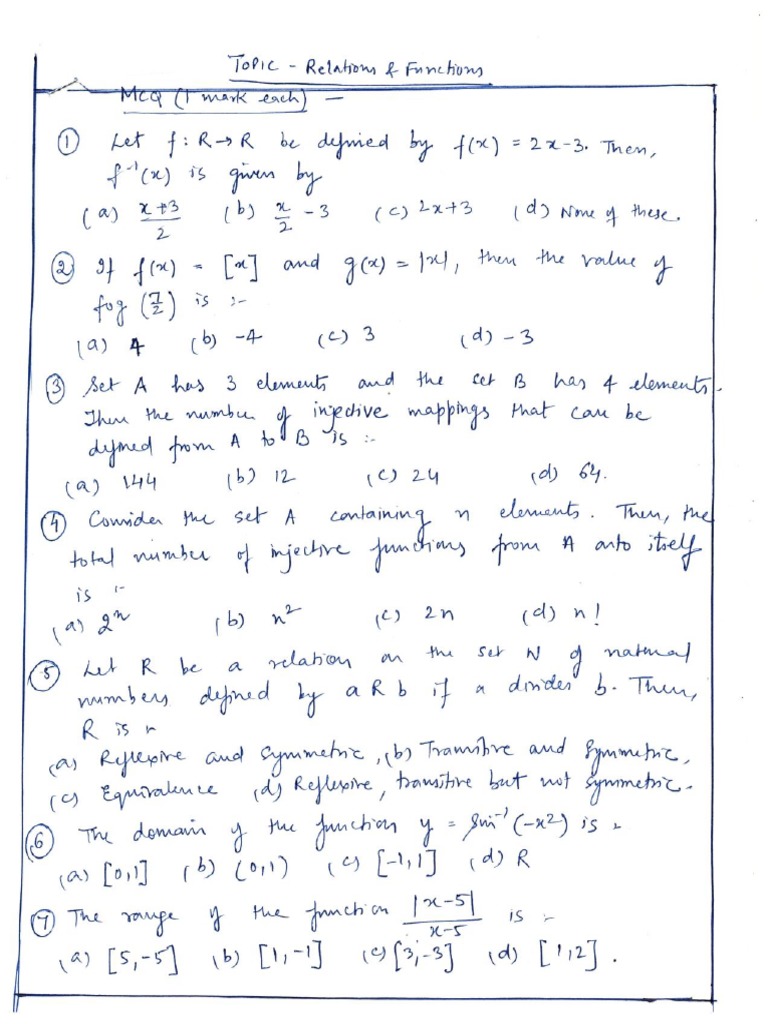 TOPIC - Relations & Functions
MCQ (1 mark each) —
① Let f : R→R be defined by f(x) = 2x-3. Then,
f⁻¹(x) is given by
(a) x+3/2 (b) x/2 - 3 (c) 2x+3 (d) None of these.
② If f(x) = [x] and g(x) = |x|, then the value of
fog (7/2) is :-
(a) 4 (b) -4 (c) 3 (d) -3
③ Set A has 3 elements and the set B has 4 elements.
Then the number of injective mappings that can be
defined from A to B is :-
(a) 144 (b) 12 (c) 24 (d) 64.
④ Consider the set A containing n elements. Then, the
total number of injective functions from A onto itself
is :-
(a) 2ⁿ (b) n² (c) 2n (d) n!
⑤ Let R be a relation on the set N of natural
numbers defined by a R b if a divides b. Then,
R is :-
(a) Reflexive and Symmetric, (b) Transitive and Symmetric,
(c) Equivalence (d) Reflexive, transitive but not symmetric.
⑥ The domain of the function y = Sin⁻¹(-x²) is :-
(a) [0,1] (b) (0,1) (c) [-1,1] (d) R
⑦ The range of the function |x-5|/x-5 is :-
(a) [5,-5] (b) [1,-1] (c) [3,-3] (d) [1,2].